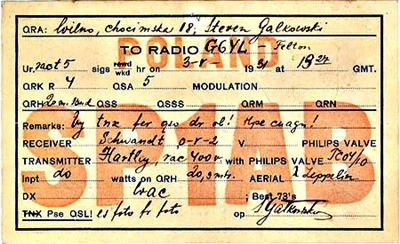 POLAND
SP1AB
QRA: Wilno, Chocimska 18; Steven Galkowski
TO RADIO G6YL - Felton
Ur, rac t5 sigs read wkd hr on 3-V- 1931 at 19 GMT.
QRK R 4 QSA 5 MODULATION
QRH 20 m. Bnd QSS QSSS QRM QRN
Remarks: tnx fer qso dr. ol! Hpe cuagn!
RECEIVER Schwandt 0-V-2 V PHILIPS VALVE
TRANSMITTER Hartley, rac 400v. with PHILIPS VALVE
Inpt do watts on QRH do, mtr. AERIAL Zeppelin
DX wac ; Best 73's
TNX Pse QSL! es foto fr foto op S. Galkowski